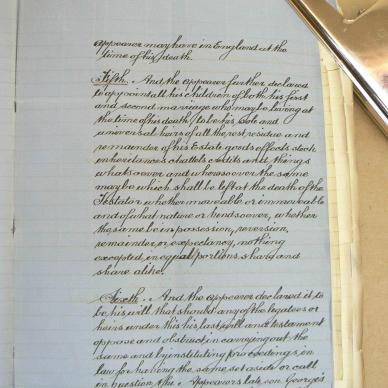 appearer may have in England at the
time of his death.
Fifth. And the appearer further declared
to appoint all his children of both his first
and second marriage who may be living at
the time of his death, to be his sole and
universal heirs of all the rest residue and
remainder of his Estate goods effects stock
inheritances chattels credits and things
whatsoever and wheresoever the same
may be which shall be left at the death of the
Testator whether moveable or immoveable
and of what nature or kind soever, whether
the same be in possession, reversion,
remainder, or expectancy, nothing
excepted, in equal portions, share and
share alike.
Sixth. And the appearer declared it to
be his will that should any of the legatees or
heirs under this his last will and testament
oppose and obstruct in carrying out the
same and by instituting proceedings in
law for having the same set aside or call
in question the appearers late son George's